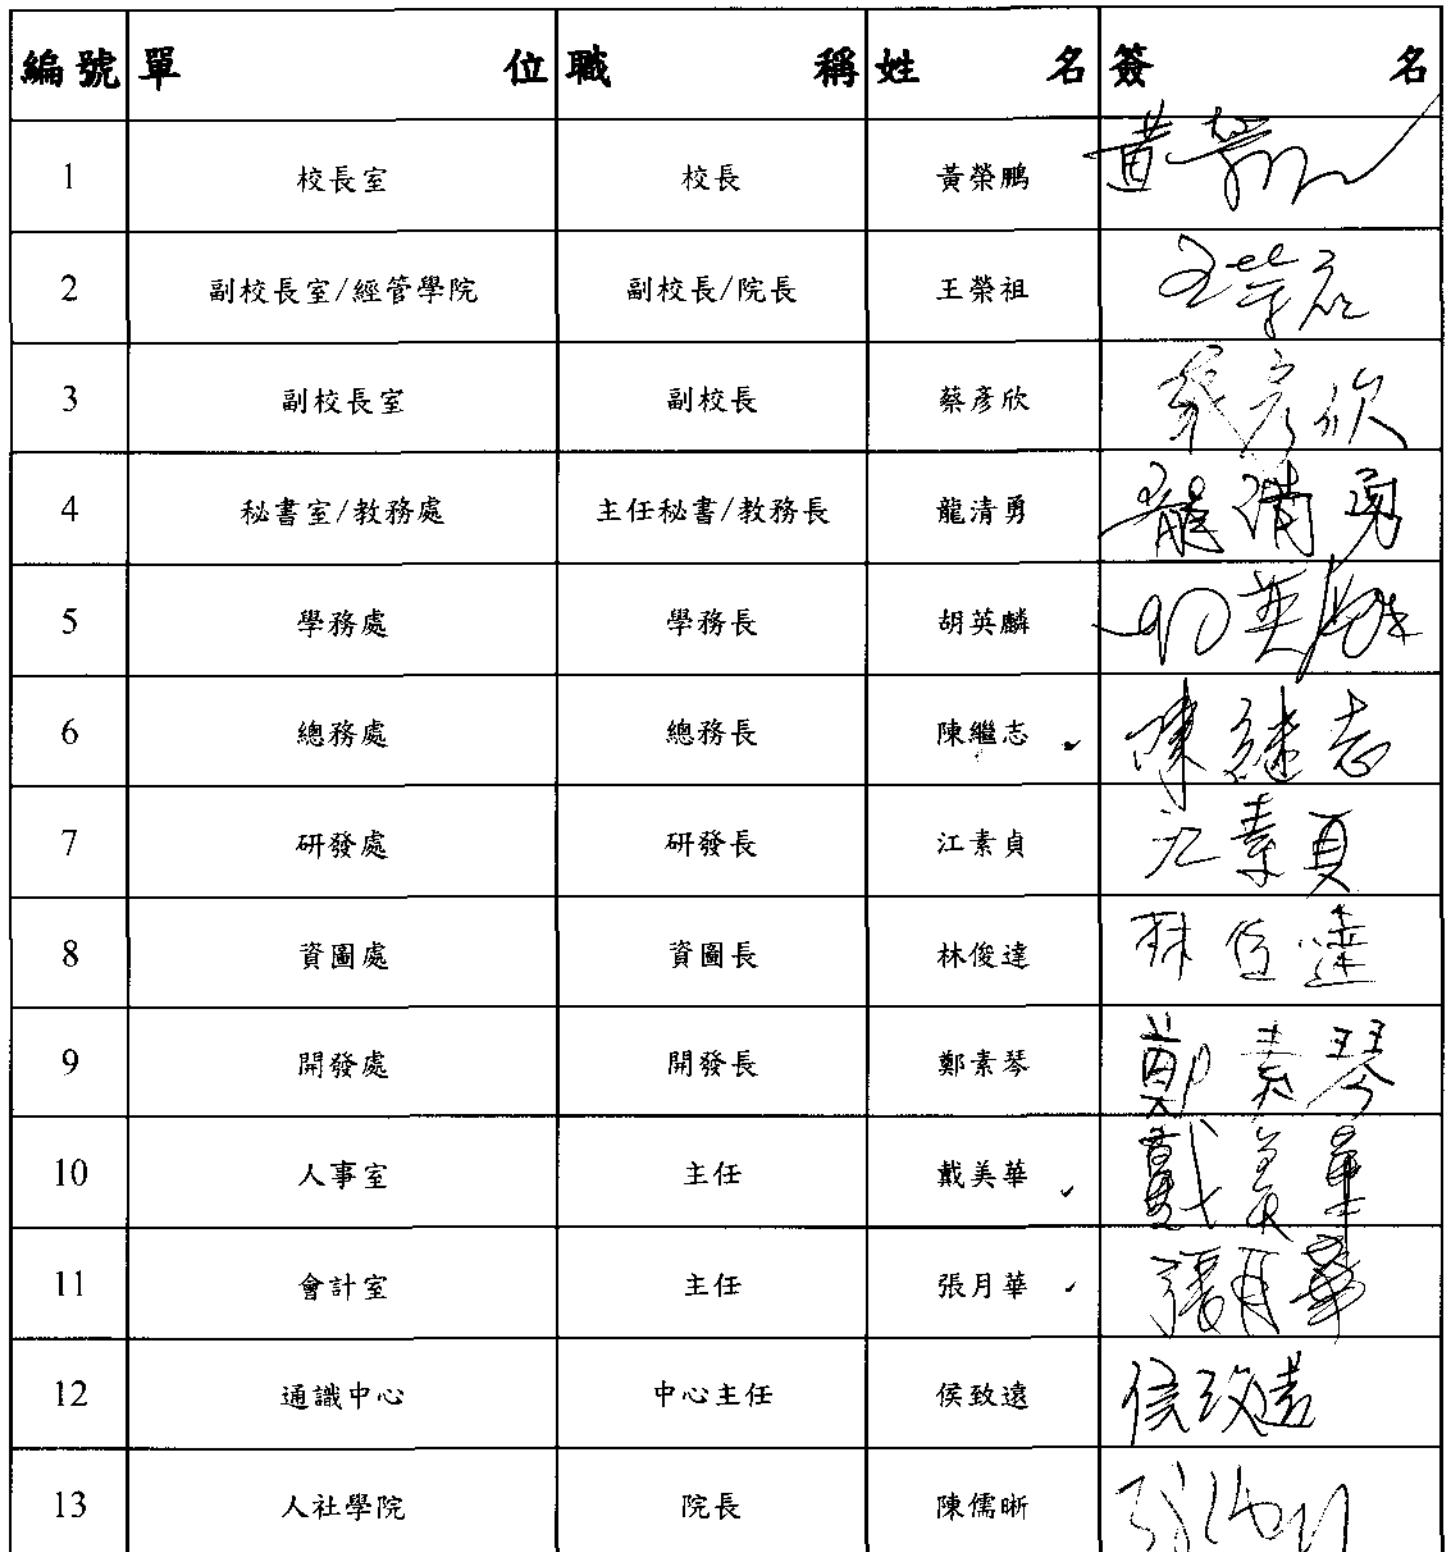 編號 單位 職稱 姓名 簽名
1 校長室 校長 黃榮鵬 黃榮
2 副校長室/經管學院 副校長/院長 王榮祖 王榮祖
3 副校長室 副校長 蔡彥欣 蔡彥欣
4 秘書室/教務處 主任秘書/教務長 龍清勇 龍清勇
5 學務處 學務長 胡英麟 胡英麟
6 總務處 總務長 陳繼志 陳继志
7 研發處 研發長 江素貞 江素貞
8 資圖處 資圖長 林俊達 林俊達
9 開發處 開發長 鄭素琴 鄭素琴
10 人事室 主任 戴美華 戴美華
11 會計室 主任 張月華 張月華
12 通識中心 中心主任 侯致遠 侯致遠
13 人社學院 院長 陳儒晰